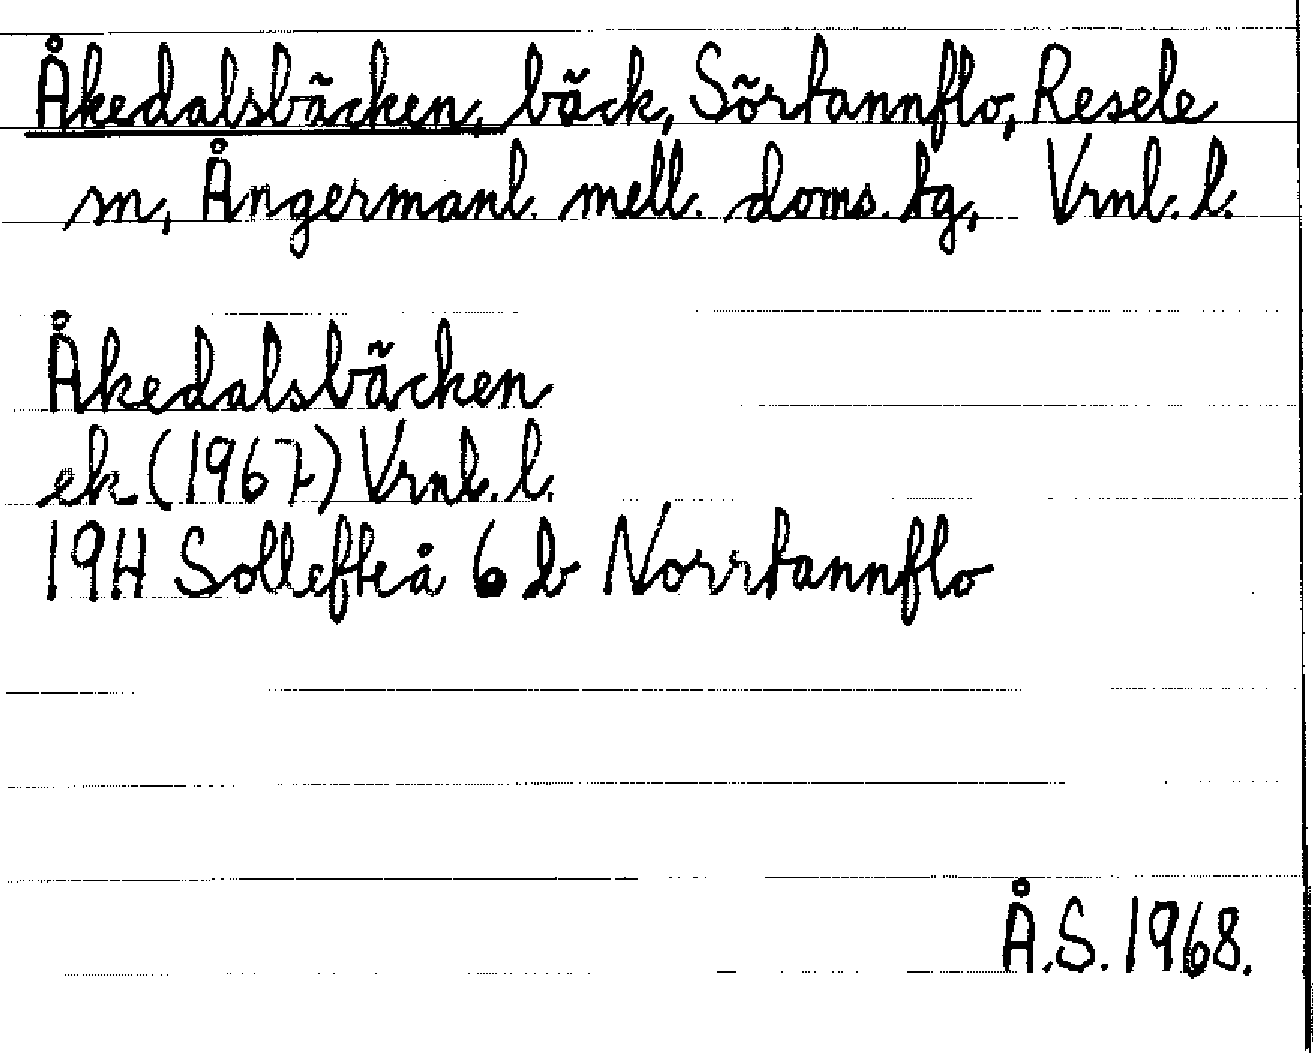 Åkedalsbäcken, bäck, Sörtannflo, Resele
sn, Ångermanl. mell. doms. tg, Vrnl. l.
Åkedalsbäcken
ek (1967) Vrnl. l.
19H Sollefteå 6 b Norrtannflo
Å.S. 1968.